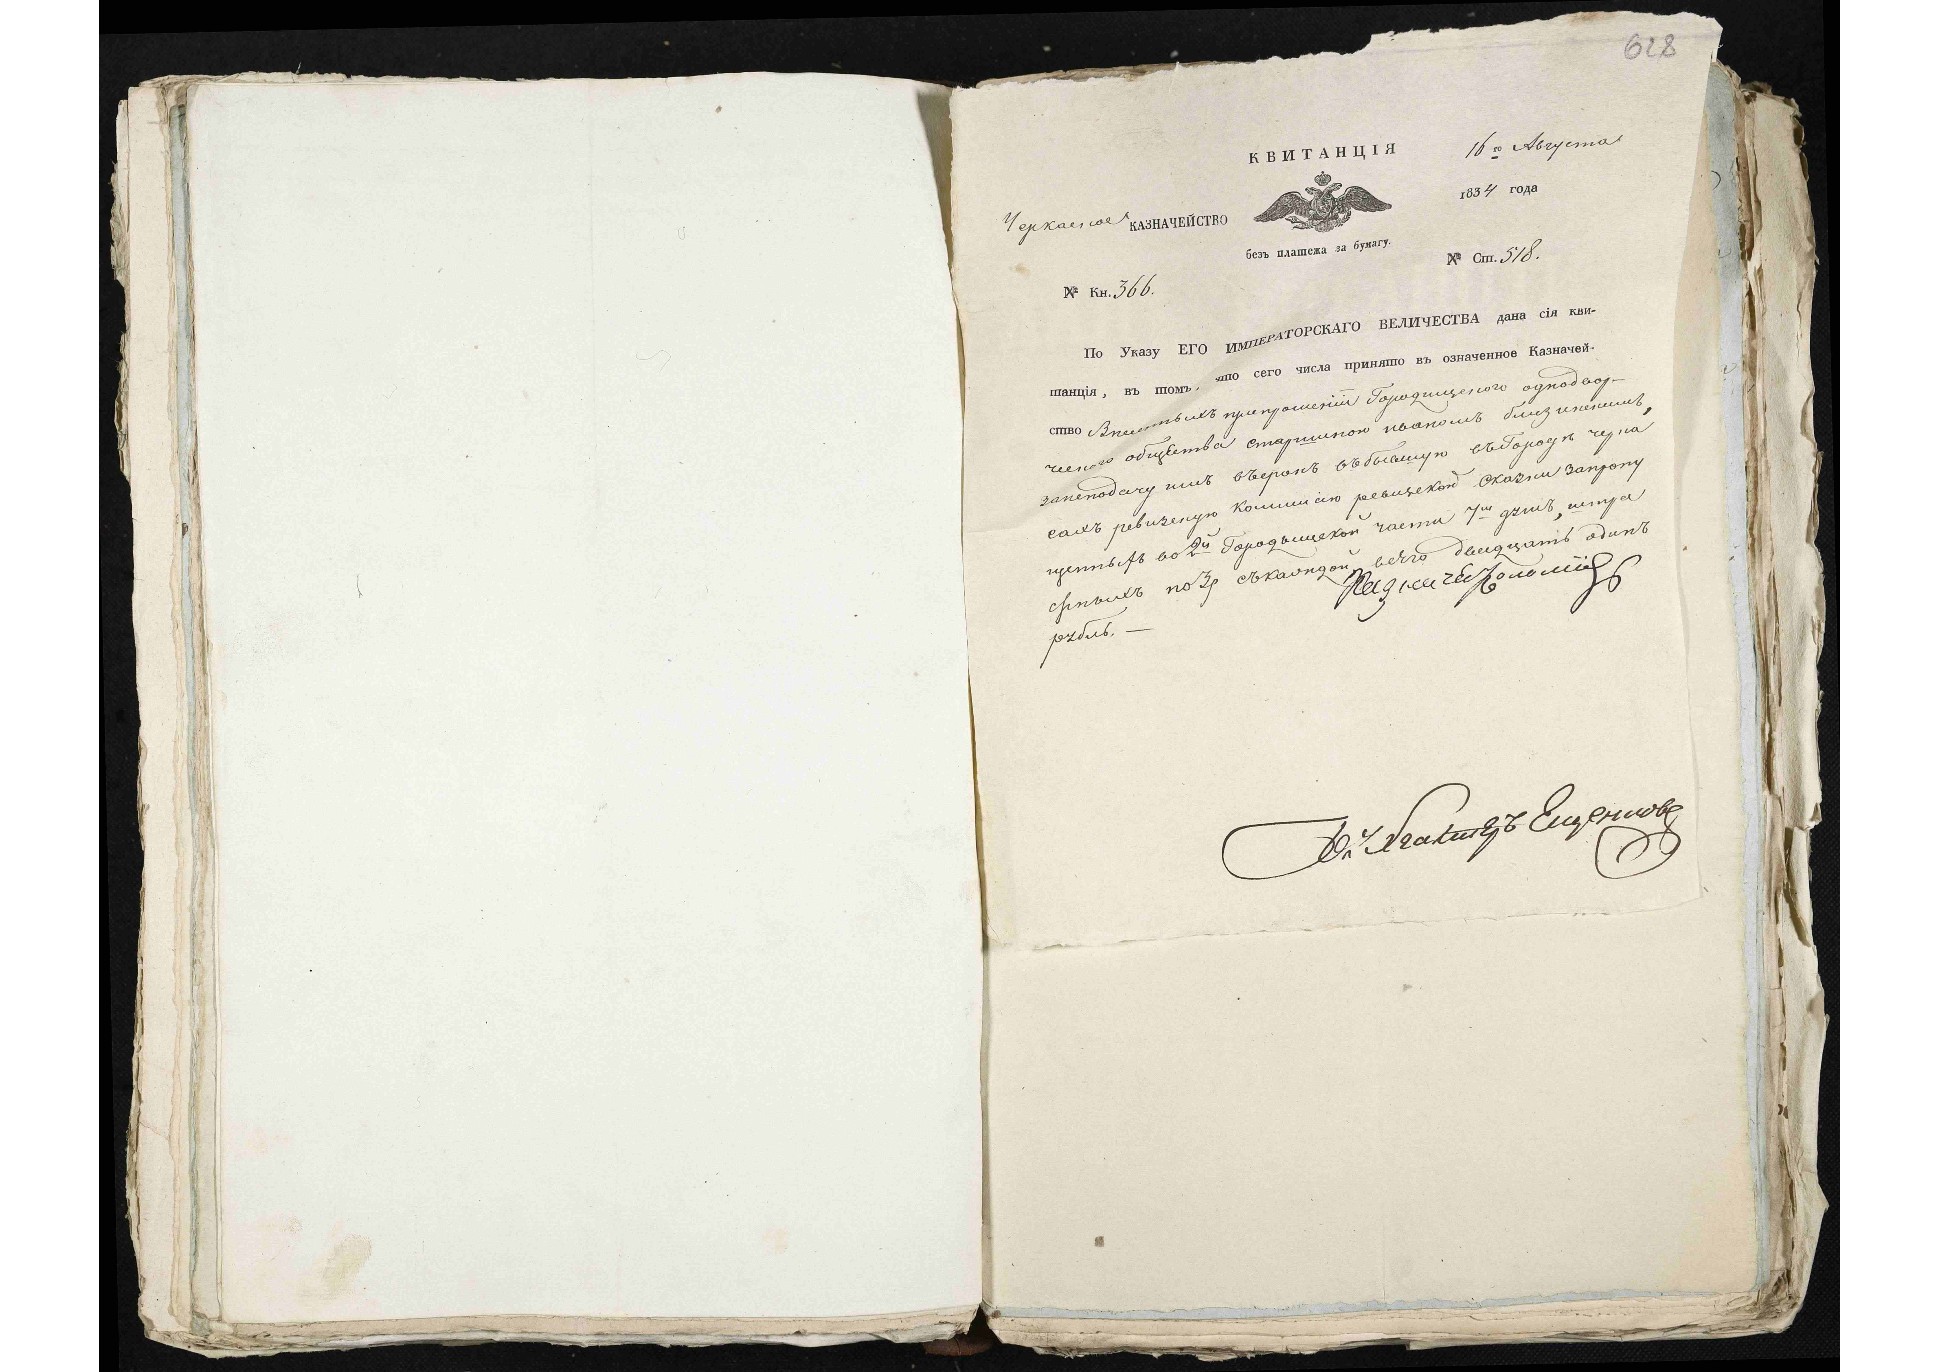 628
КВИТАНЦІЯ
16го Августа
1834 года
Черкаское КАЗНАЧЕЙСТВО
безъ платежа за бумагу.
№ Ст. 518.
№ Кн. 366.
По Указу ЕГО ИМПЕРАТОРСКАГО ВЕЛИЧЕСТВА дана сія кви-
танція, въ томъ, что сего числа принято въ означенное Казначей-
ство Городищского однодвор-
ческого общества старшиною
занеподачу имъ въсрокъ въбывшую въГородѣ Черка
сахъ ревизскую Коммисію ревизской сказки запропу
щенныхъ во 2й Городищской части 7м душъ, штра
фныхъ по 3р съкаждой, всего двадцать одинъ
рубль. —
Казначей
Бухгалтеръ